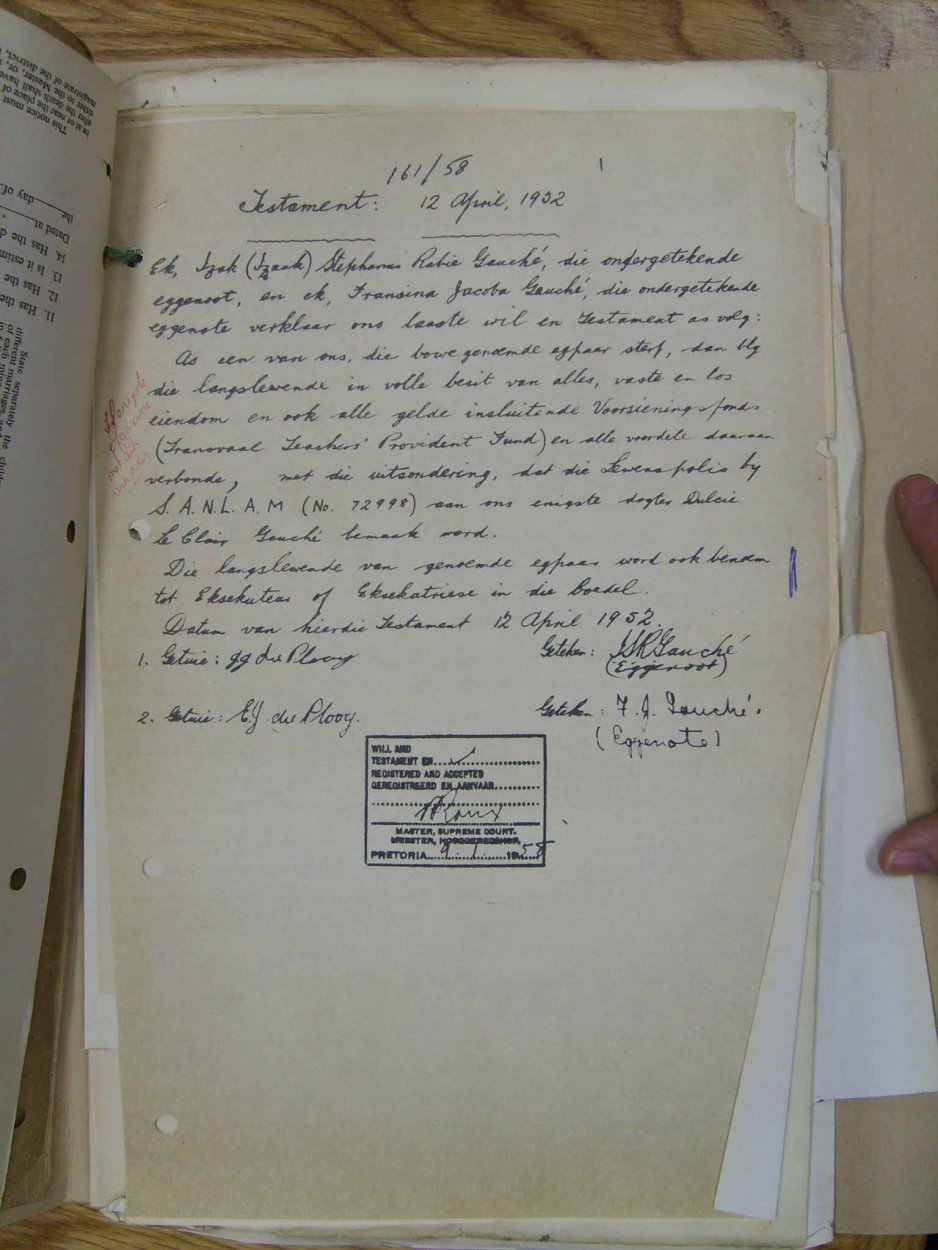 161/58
Testament: 12 April, 1932
Ek, Izak (Izaak) Stephanus Rabie Gauché, die ondergetekende
eggenoot, en ek, Fransina Jacoba Gauché, die ondergetekende
eggenote verklaar ons laaste wil en Testament as volg:
As een van ons, die bowegenoemde egpaar sterf, dan bly
die langslewende in volle besit van alles, vaste en los
eiendom en ook alle gelde insluitende Voorsieningsfonds
(Transvaal Teachers' Provident Fund) en alle voordele daaraan
verbonde, met die uitsondering, dat die Lewenspolis by
S.A.N.L.A.M (No. 72998) aan ons enigste dogter Dulcie
Le Clair Gauché bemaak word.
Die langslewende van genoemde egpaar word ook benoem
tot Eksekuteur of Eksekutriese in die boedel.
Datum van hierdie Testament 12 April 1952.
1. Getuie: gg du Plooy Geteken: ISRGauché
(Eggenoot)
2. Getuie: E.J. du Plooy. Geteken: F. J. Gauché.
(Eggenote)
WILL AND
TESTAMENT EN
REGISTERED AND ACCEPTED
GEREGISTREERD EN AANVAAR
MASTER, SUPREME COURT.
MEESTER, HOOGGEREGSHOF,
PRETORIA 9 1 1958
This notice must
be at or near the place of
after the death shall have
either to the Master, or,
magistrate of the district,
the day of
Dated at
14. Has the d
13. Is it estim
12. Has the
11. Has the
State separately the
different marriages,
of each